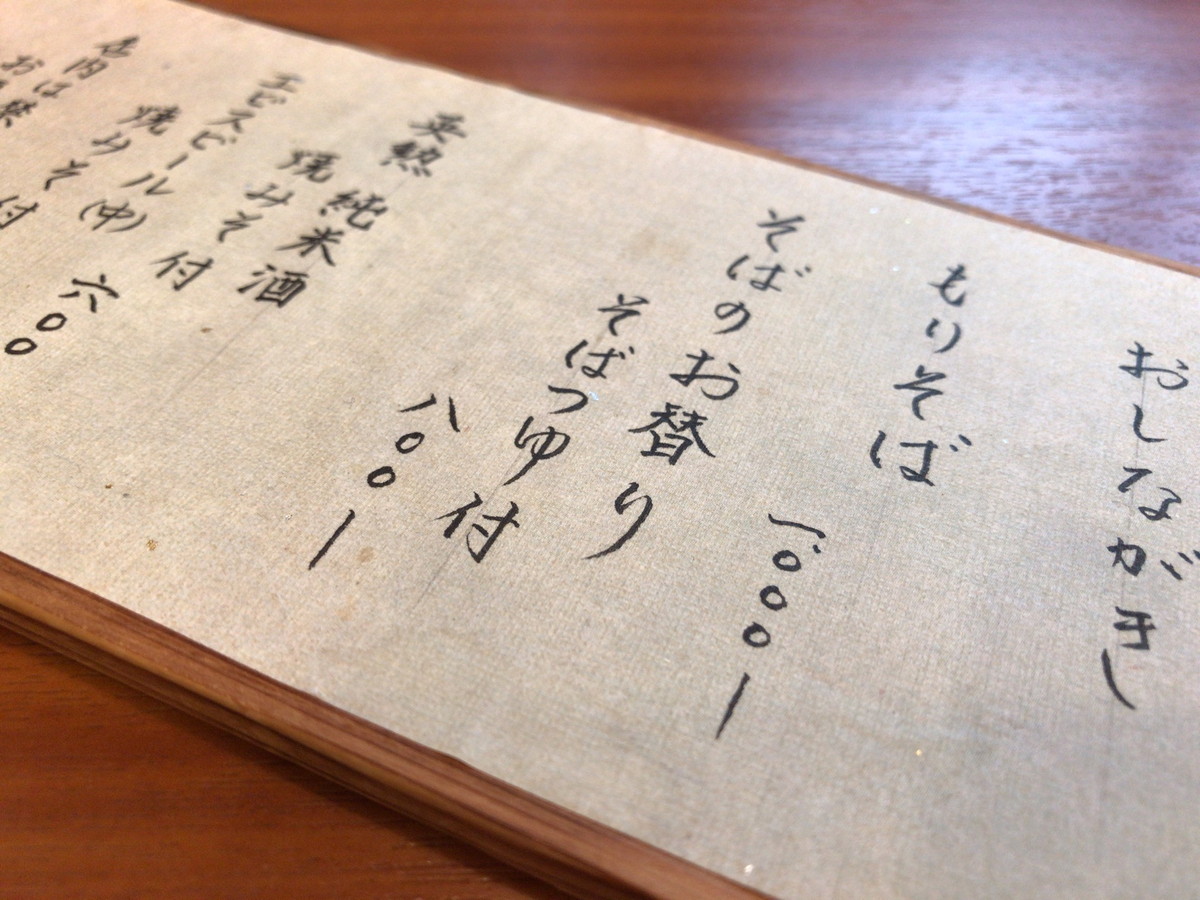 おしながき
もりそば
一、〇〇〇ー
そばのお替り
そばつゆ付
八〇〇ー
英勲 純米酒
焼みそ付
六〇〇
エビスビール(中)
焼みそ付
店内は